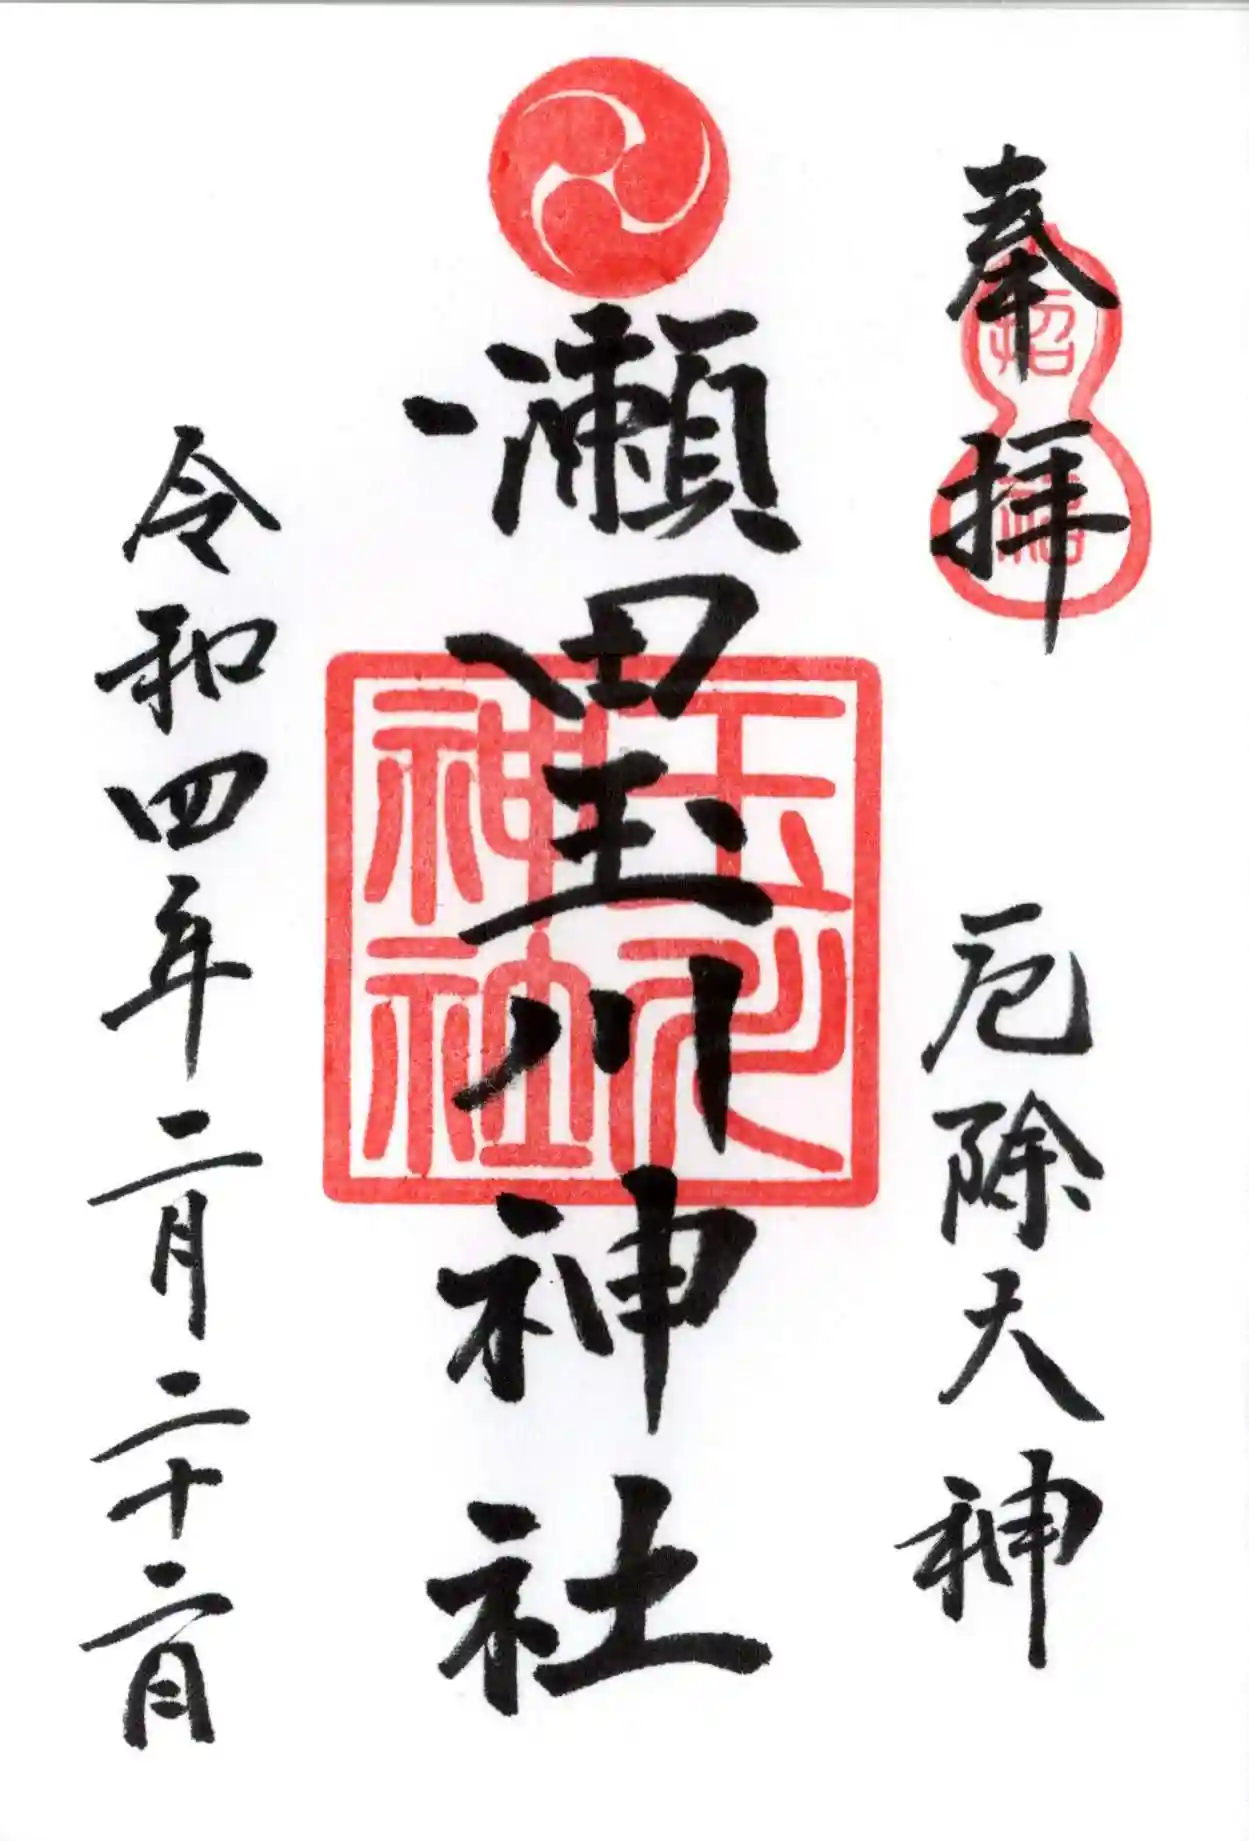 奉拝
招福
厄除大神
瀬田玉川神社
玉川神社
令和四年二月二十二日